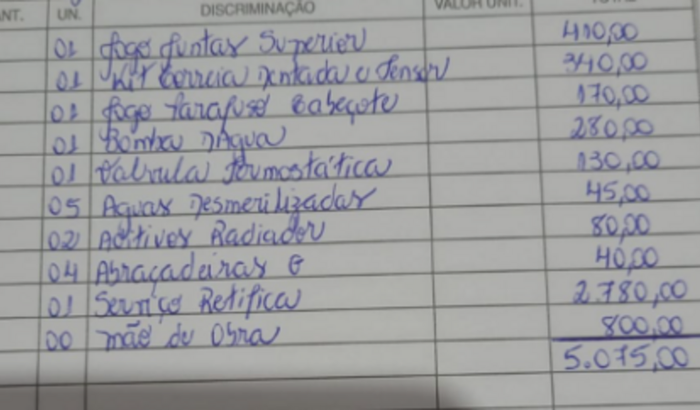 NT. UN. DISCRIMINAÇÃO VALOR UNIT.
01 Jogo Juntas Superior 410,00
01 Kit Correia Dentada e Tensor 340,00
01 Jogo Parafuso Cabeçote 170,00
01 Bomba DAgua 280,00
01 Valvula Termostática 130,00
05 Aguas Desmerilizadas 45,00
02 Aditivos Radiador 80,00
04 Abraçadeiras 40,00
01 Serviço Retifica 2.780,00
00 mão de Obra 800,00
5.075,00